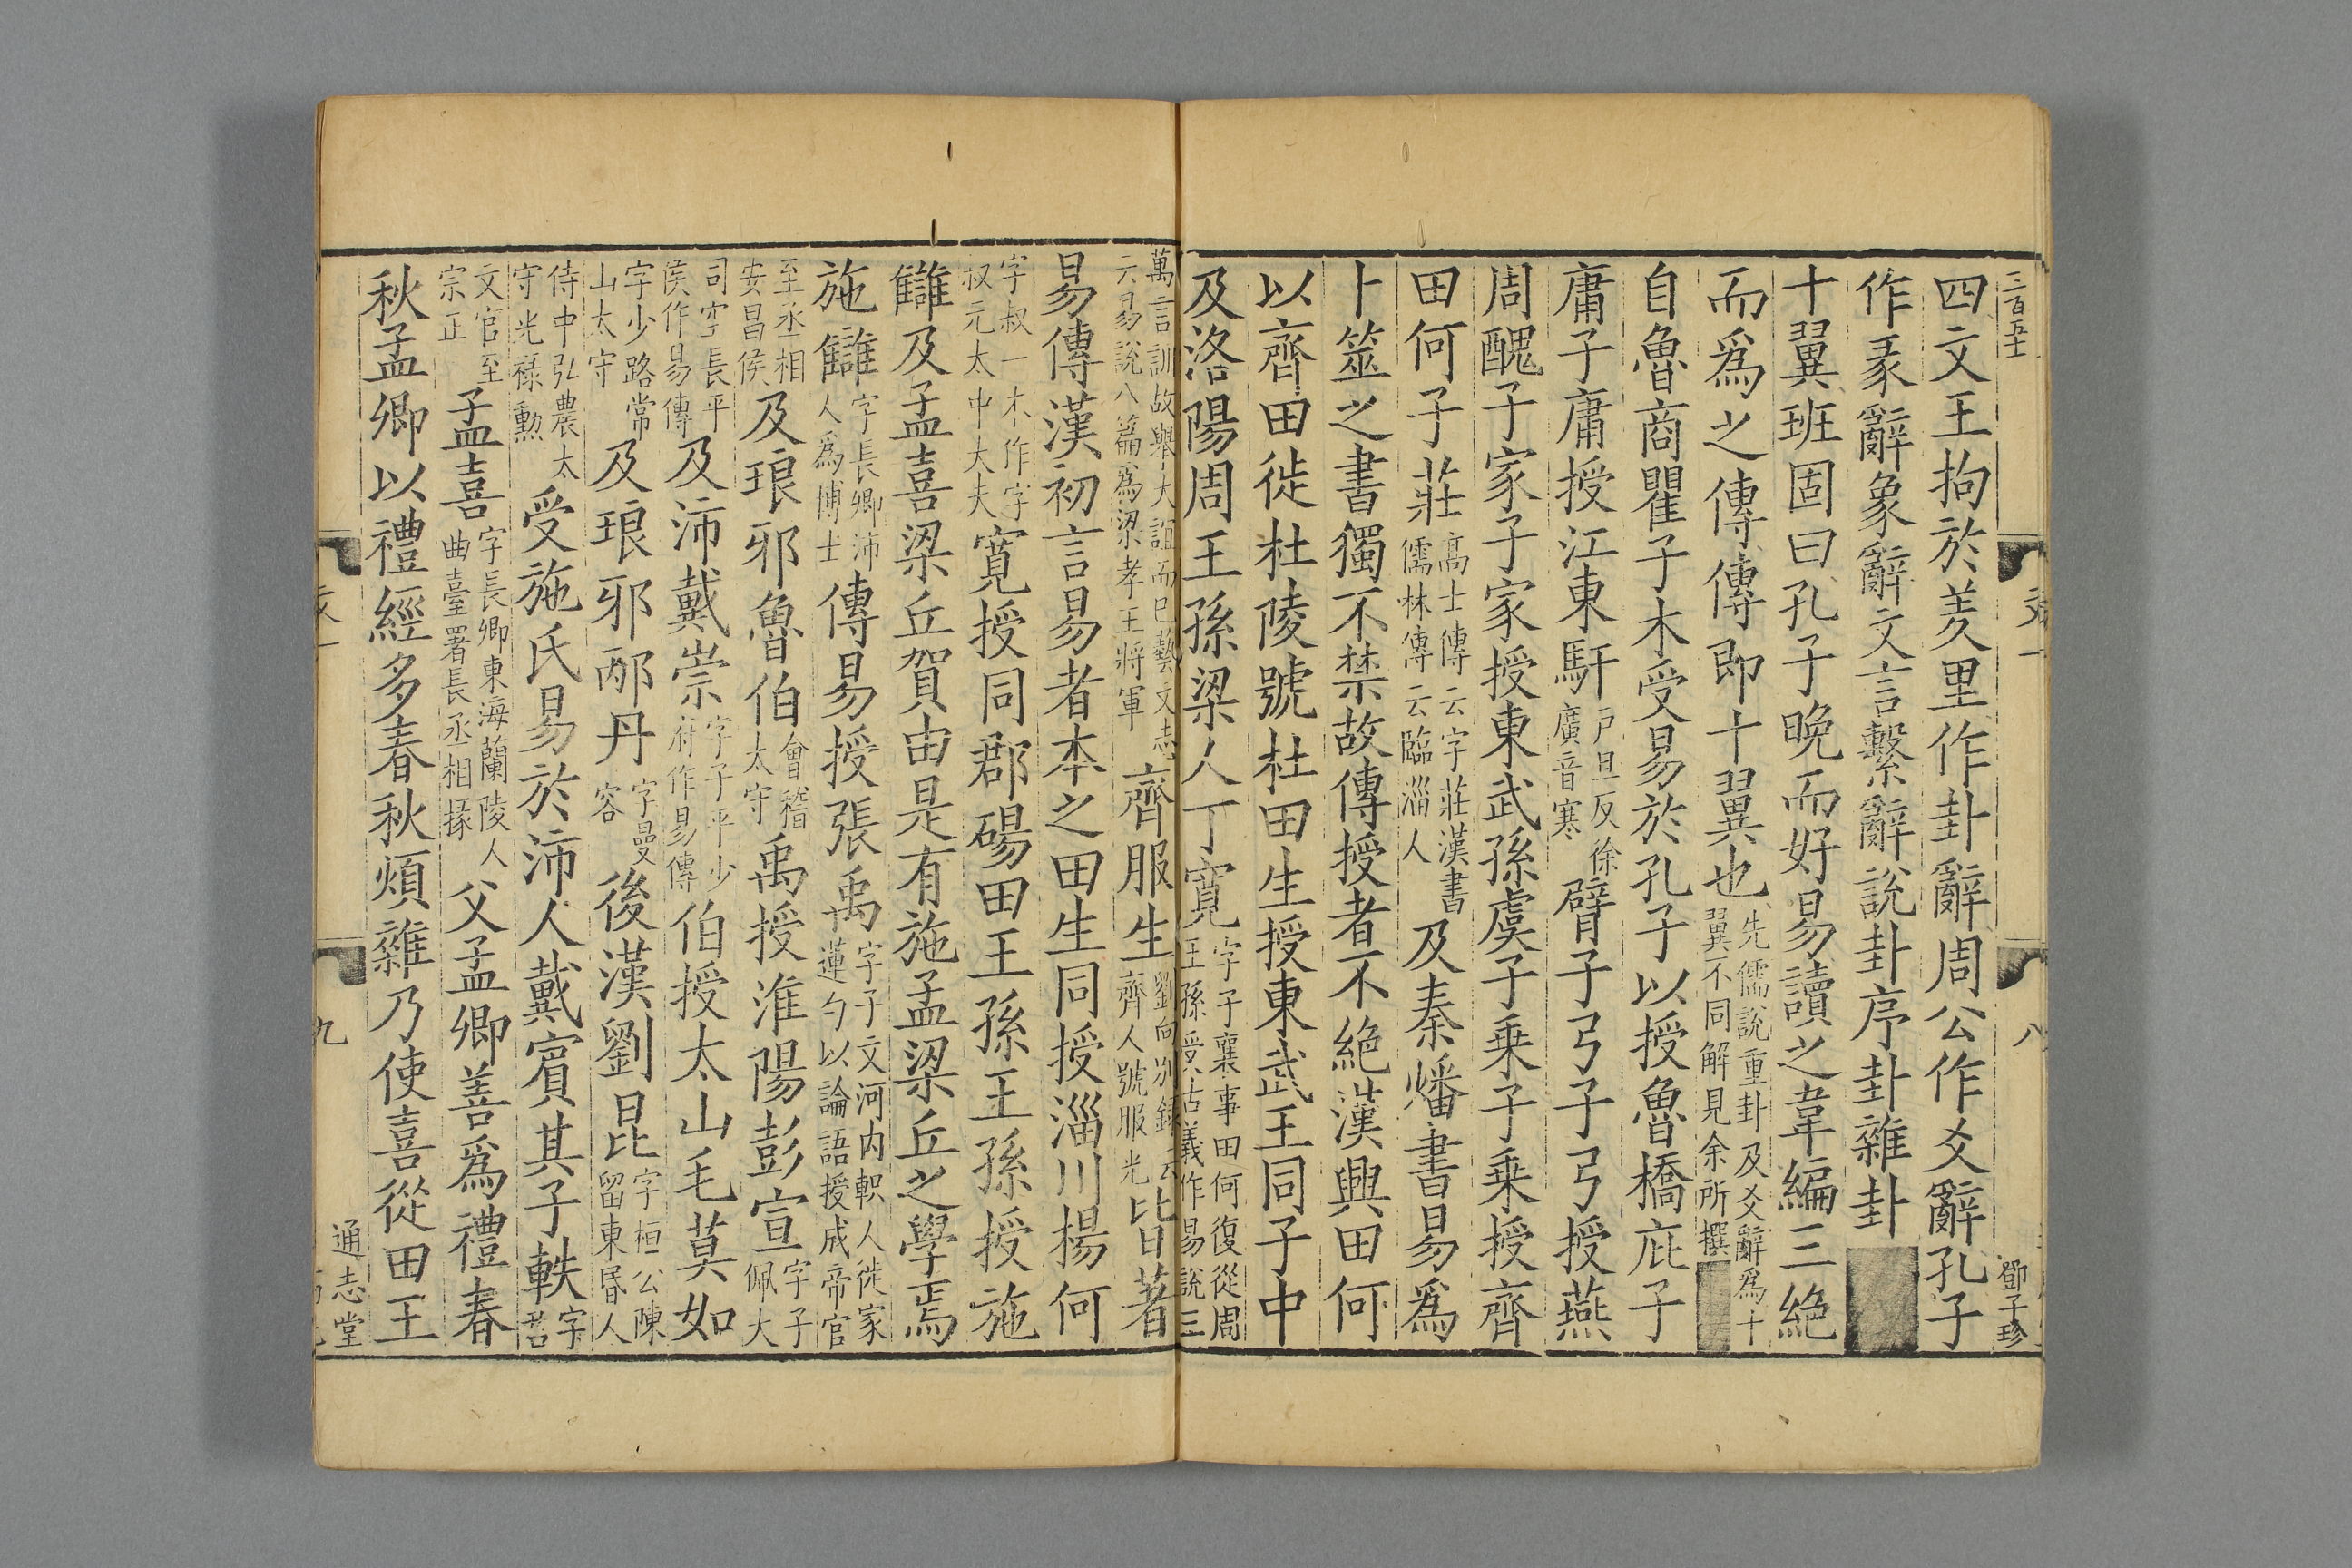 三百五十
鄧子珍
八
四文王拘於羑里作卦辭周公作爻辭孔子
作彖辭象辭文言繫辭說卦序卦雜卦
十翼班固曰孔子晚而好易讀之韋編三絶
而爲之傳傳即十翼也先儒說重卦及爻辭爲十翼不同解見余所撰
自魯商瞿子木受易於孔子以授魯橋庇子
庸子庸授江東馯戸旦反徐廣音寒臂子弓子弓授燕
周醜子家子家授東武孫虞子乗子乗授齊
田何子莊高士傳云字莊漢書儒林傳云臨淄人及秦燔書易爲
卜筮之書獨不禁故傳授者不絶漢興田何
以齊田徙杜陵號杜田生授東武王同子中
及洛陽周王孫梁人丁寛字子襄事田何復從周王孫受古義作易說三
萬言訓故舉大誼而已藝文志云易說八篇爲梁孝王將軍齊服生劉向別録云齊人號服光皆著
易傳漢初言易者本之田生同授淄川楊何
字叔一本作字叔元太中大夫寛授同郡碭田王孫王孫授施
讎及孟喜梁丘賀由是有施孟梁丘之學焉
施讎字長卿沛人爲博士傳易授張禹字子文河内軹人徙家蓮勺以論語授成帝官
至丞相安昌侯及琅邪魯伯會稽太守禹授淮陽彭宣字子佩大
司空長平侯作易傳及沛戴崇字子平少府作易傳伯授太山毛莫如
字少路常山太守及琅邪邴丹字曼容後漢劉昆字桓公陳留東昏人
侍中弘農太守光祿勳受施氏易於沛人戴賓其子軼字君
文官至宗正孟喜字長卿東海蘭陵人曲臺署長丞相掾父孟卿善爲禮春
秋孟卿以禮經多春秋煩雜乃使喜從田王
九
通志堂